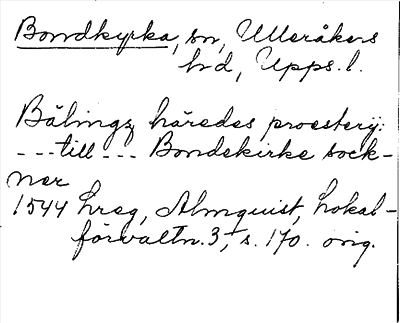 Bondkyrka, sn, Ulleråkers
hd, Upps. l.
Bälings häredes proestery:
--- till --- Bondekirke sock-
ner
1544 hreg, Almquist, Lokal-
förvaltn. 3, s. 170. orig.